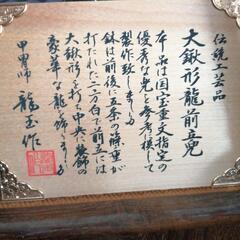 伝統工芸品
大鍬形龍前立兜
本品は国宝重文指定の
優秀な兜を参考に模して
製作致しました
鉢は前後に五条の篠垂が
打たれた二方白で前立には
大鍬形を打ち中央に装飾の
豪華な龍を飾りました
甲冑師 龍玉作